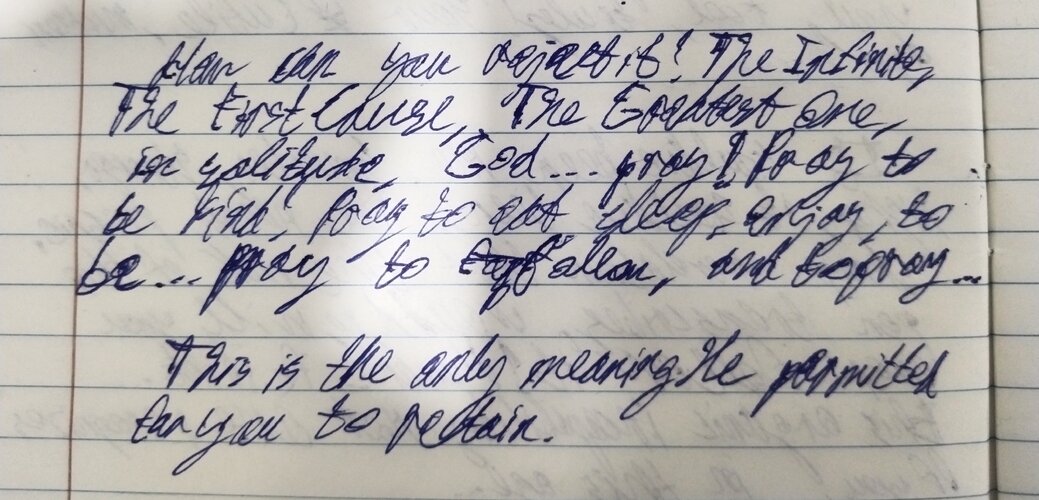 How can you reject it! The Infinite,
The First Cause, The Greatest One,
in solitude, God... pray! Pray to
be kind, Pray to eat, sleep, enjoy, to
be... pray to fallon, and to pray...
This is the only meaning He permitted
for you to retain.